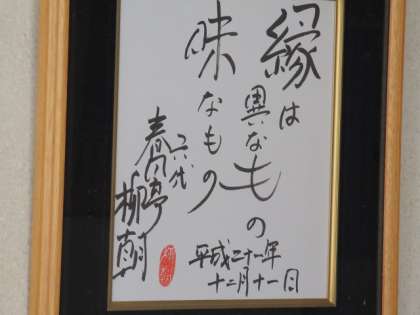 縁は異なもの
味なもの
六代
春風亭柳朝
平成二十一年
十二月十一日